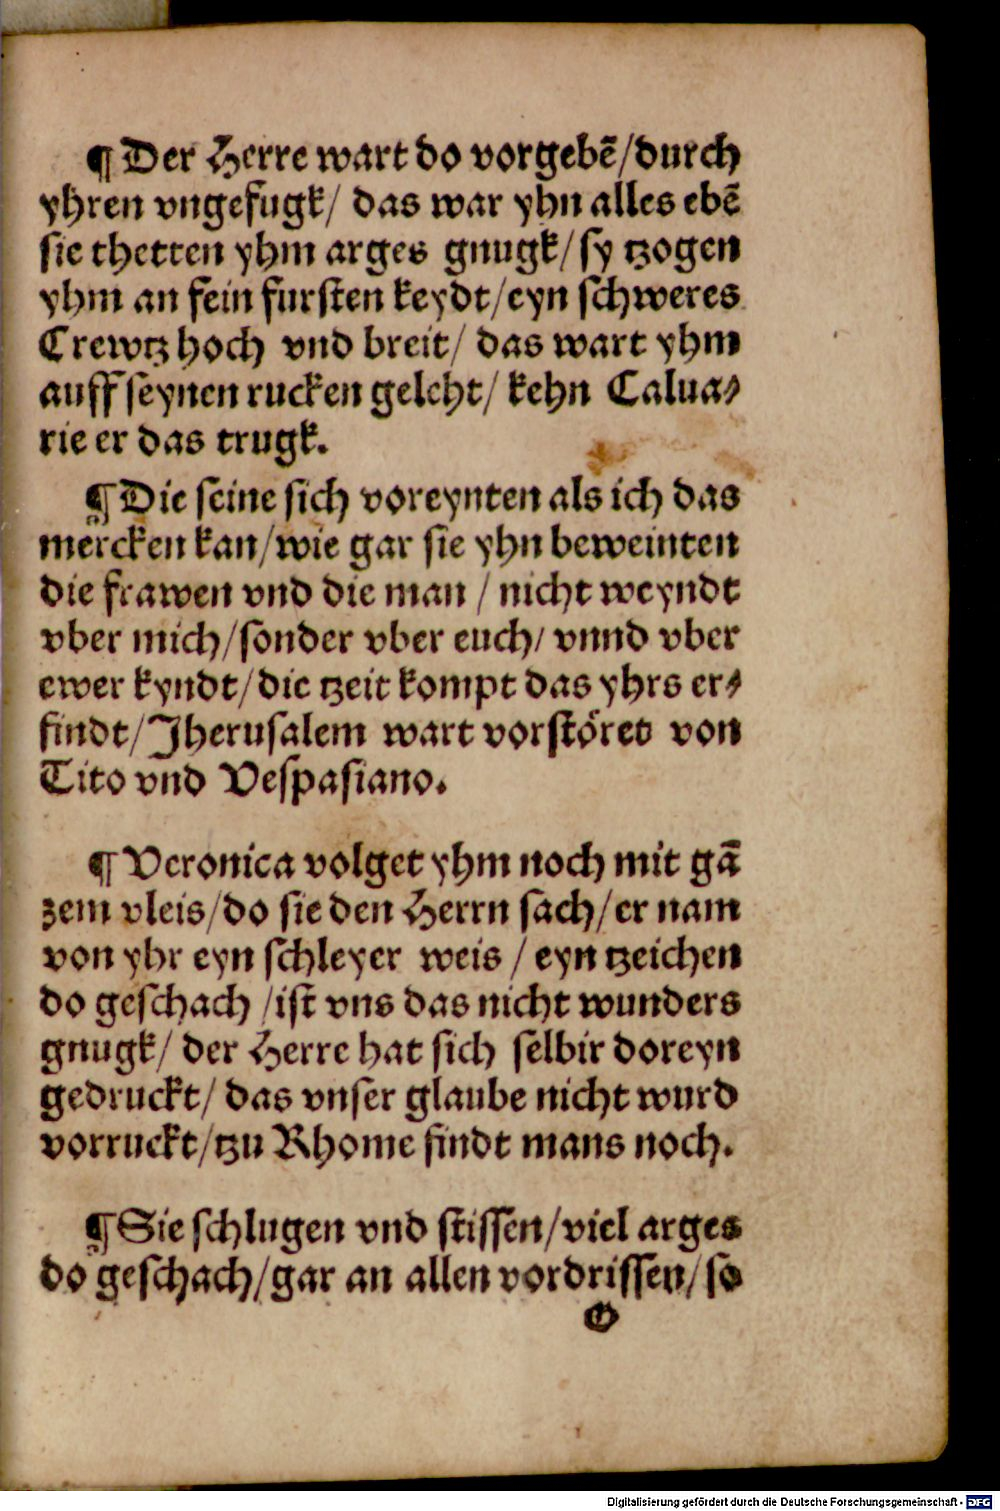 ¶ Der Herre wart do vorgebē/durch
yhren vngefugk/ das war yhn alles ebē
sie thetten yhm arges gnugk/sy tzogen
yhm an sein fursten keydt/eyn schweres
Crewtz hoch vnd breit/ das wart yhm
auff seynen rucken geleht/ kehn Calua⸗
rie er das trugk.
¶ Die seine sich voreynten als ich das
mercken kan/wie gar sie yhn beweinten
die frawen vnd die man / nicht weyndt
vber mich/sonder vber euch/ vnnd vber
ewer kyndt/die tzeit kompt das yhrs er⸗
findt/Jherusalem wart vorstöret von
Tito vnd Vespasiano.
¶ Veronica volget yhm noch mit gā
zem vleis/do sie den Herrn sach/er nam
von yhr eyn schleyer weis / eyn tzeichen
do geschach /ist vns das nicht wunders
gnugk/ der Herre hat sich selbir doreyn
gedruckt/ das vnser glaube nicht wurd
vorruckt/tzu Rhome findt mans noch.
¶ Sie schlugen vnd stissen/viel arges
do geschach/gar an allen vordrissen/so
Digitalisierung gefördert durch die Deutsche Forschungsgemeinschaft - DFG